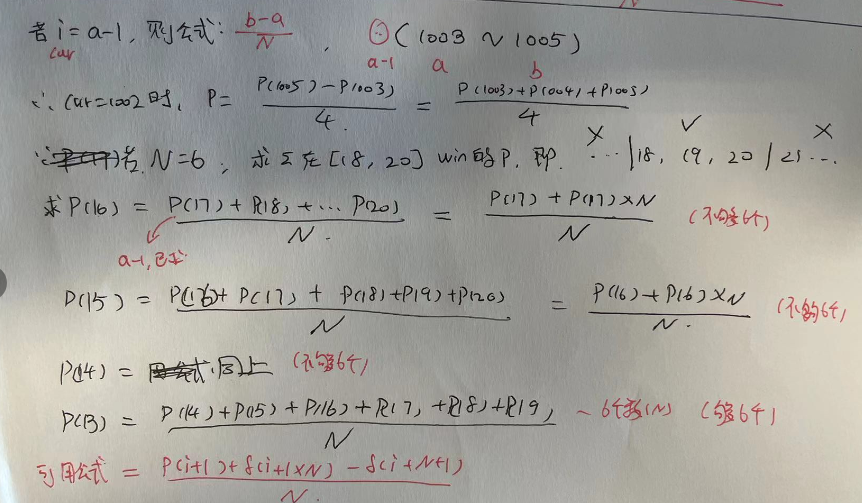 若 i = a-1, 则公式: b-a / N , ⊙ ( 1003 ~ 1005 )
cur a-1 a b
∴ cur=1002时, P = P(1005) - P(1003) / 4. = P(1003)+P(1004)+P(1005) / 4
若 N=6, 求 Σ 在 [18, 20] win的P, 即. ✗ ... | 18, ✓ 19, 20 | 21 ... ✗
求 P(16) = P(17) + P(18) + ... P(20) / N. = P(17) + P(17)×N / N (不够6个)
a-1, 已求
P(15) = P(16) + P(17) + P(18) + P(19) + P(20) / N = P(16) + P(16)×N / N. (不够6个)
P(14) = 同上 (不够6个)
P(13) = P(14) + P(15) + P(16) + P(17) + P(18) + P(19) / N ~ 6个数(N) (够6个)
引用公式 = P(i+1) + f(i+1×N) - f(i+N+1) / N.